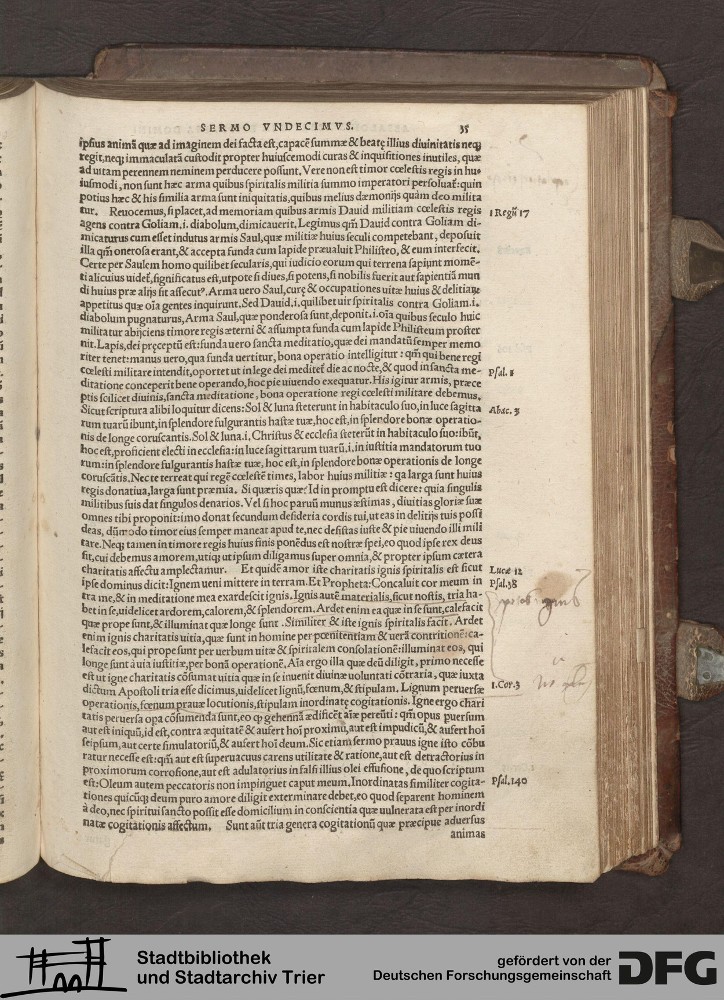 SERMO VNDECIMVS. 35
ipsius animā quæ ad imaginem dei facta est, capacē summæ & beatę illius diuinitatis neq;
regit, neq; immaculatā custodit propter huiuscemodi curas & inquisitiones inutiles, quæ
ad uitam perennem neminem perducere possunt. Vere non est timor cœlestis regis in hu-
iusmodi, non sunt hæc arma quibus spiritalis militia summo imperatori persoluat̄: quin
potius hæc & his similia arma sunt iniquitatis, quibus melius dæmonijs quàm deo milita
tur. Reuocemus, si placet, ad memoriam quibus armis Dauid militiam cœlestis regis
1 Regū 17
agens contra Goliam .i. diabolum, dimicauerit. Legimus qm̄ Dauid contra Goliam di-
micaturus cum esset indutus armis Saul, quæ militiæ huius seculi competebant, deposuit
illa qm̄ onerosa erant, & accepta funda cum lapide præualuit Philisteo, & eum interfecit.
Certe per Saulem homo quilibet secularis, qui iudicio eorum qui terrena sapiunt momē-
ti alicuius uidet̄, significatus est, utpote si diues, si potens, si nobilis fuerit aut sapientiā mun
di huius præ alijs sit assecut⁹. Arma uero Saul, curę & occupationes uitæ huius & delitiæ
appetitus quæ oīa gentes inquirunt. Sed Dauid .i. quilibet uir spiritalis contra Goliam .i.
diabolum pugnaturus, Arma Saul, quæ ponderosa sunt, deponit .i. oīa quibus seculo huic
militatur abijciens timore regis æterni & assumpta funda cum lapide Philisteum proster
nit. Lapis, dei pręceptū est: funda uero sancta meditatio, quæ dei mandatū semper memo
riter tenet: manus uero, qua funda uertitur, bona operatio intelligitur: qm̄ qui bene regi
cœlesti militare intendit, oportet ut in lege dei meditet̄ die ac nocte, & quod in sancta me-
Psal. 1
ditatione conceperit bene operando, hoc pie uiuendo exequatur. His igitur armis, præce
ptis scilicet diuinis, sancta meditatione, bona operatione regi cœlesti militare debemus.
Sicut scriptura alibi loquitur dicens: Sol & luna steterunt in habitaculo suo, in luce sagitta
Abac. 3
rum tuarū ibunt, in splendore fulgurantis hastæ tuæ, hoc est, in splendore bonæ operatio-
nis de longe coruscantis. Sol & luna .i. Christus & ecclesia steterūt in habitaculo suo: ibūt,
hoc est, proficient electi in ecclesia: in luce sagittarum tuarū .i. in iustitia mandatorum tuo
rum: in splendore fulgurantis hastæ tuæ, hoc est, in splendore bonæ operationis de longe
coruscātis. Nec te terreat qui regē cœlestē times, labor huius militiæ: qa larga sunt huius
regis donatiua, larga sunt præmia. Si quæris quæ? Id in promptu est dicere: quia singulis
militibus suis dat singulos denarios. Vel si hoc paruū munus æstimas, diuitias gloriæ suæ
omnes tibi proponit: imo donat secundum desideria cordis tui, ut eas in delitijs tuis possi
deas, dūmodo timor eius semper maneat apud te, nec desistas iuste & pie uiuendo illi mili
tare. Neq; tamen in timore regis huius finis ponēdus est nostræ spei, eo quod ipse rex deus
sit, cui debemus amorem, utiq; ut ipsum diligamus super omnia, & propter ipsum cætera
charitatis affectu amplectamur. Et quidē amor iste charitatis ignis spiritalis est sicut
Lucæ 12
ipse dominus dicit: Ignem ueni mittere in terram. Et Propheta: Concaluit cor meum in
Psal. 38
tra me, & in meditatione mea exardescit ignis. Ignis autē materialis, sicut nostis, tria ha-
bet in se, uidelicet ardorem, calorem, & splendorem. Ardet enim ea quæ in se sunt, calefacit
quæ prope sunt, & illuminat quæ longe sunt. Similiter & iste ignis spiritalis facit. Ardet
enim ignis charitatis uitia, quæ sunt in homine per pœnitentiam & uerā contritionē: ca-
lefacit eos, qui prope sunt per uerbum uitæ & spiritalem consolationē: illuminat eos, qui
longe sunt à uia iustitiæ, per bonā operationē. Aīa ergo illa quæ deū diligit, primo necesse
est ut igne charitatis cōsumat uitia quæ in se inuenit diuinæ uoluntati cōtraria, quæ iuxta
dictum Apostoli tria esse dicimus, uidelicet lignū, fœnum, & stipulam. Lignum peruersæ
1. Cor. 3
operationis, fœnum prauæ locutionis, stipulam inordinatę cogitationis. Igne ergo chari
tatis peruersa opa cōsumenda sunt, eo qp gehennā ædificēt aīæ perēūti: qm̄ opus puersum
aut est iniquū, id est, contra æquitatē & ausert hoī proximū, aut est impudicū, & aufert hoī
seipsum, aut certe simulatoriū, & aufert hoī deum. Sic etiam sermo prauus igne isto cōbu
ratur necesse est: qm̄ aut est superuacuus carens utilitate & ratione, aut est detractorius in
proximorum corrosione, aut est adulatorius in falsi illius olei effusione, de quo scriptum
est: Oleum autem peccatoris non impinguet caput meum. Inordinatas similiter cogita-
Psal. 140
tiones quicūq; deum puro amore diligit exterminare debet, eo quod separent hominem
à deo, nec spiritui sancto possit esse domicilium in conscientia quæ uulnerata est per inordi
natæ cogitationis affectum. Sunt aūt tria genera cogitationū quæ præcipue aduersus
animas
Stadtbibliothek
und Stadtarchiv Trier
gefördert von der
Deutschen Forschungsgemeinschaft
DFG